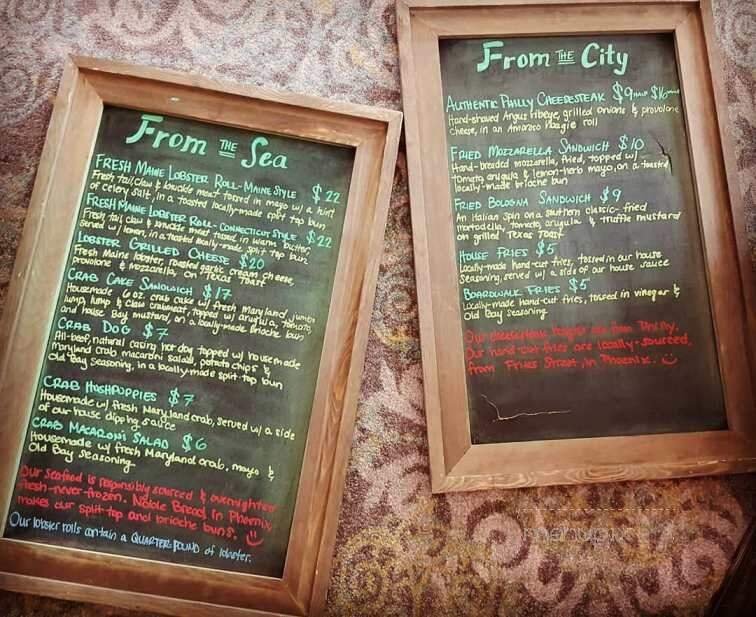 From THE Sea
FRESH MAINE LOBSTER ROLL - MAINE STYLE $22
Fresh tail, claw & knuckle meat tossed in mayo w/ a hint
of celery salt, in a toasted locally-made split top bun
FRESH MAINE LOBSTER ROLL - CONNECTICUT STYLE $22
Fresh tail, claw & knuckle meat tossed in warm butter,
served w/ lemon, in a toasted locally-made split top bun
LOBSTER GRILLED CHEESE $20
Fresh Maine lobster, roasted garlic cream cheese,
provolone & mozzarella, on Texas toast
CRAB CAKE SANDWICH $17
Housemade 6 oz. crab cake w/ fresh Maryland jumbo
lump, lump & claw crabmeat, topped w/ arugula, tomato,
and house Bay mustard, on a locally-made brioche bun
CRAB DOG $7
All-beef, natural casing hot dog topped w/ housemade
Maryland crab macaroni salad, potato chips &
Old Bay seasoning, in a locally-made split top bun
CRAB HUSHPUPPIES $7
Housemade w/ fresh Maryland crab, served w/ a side
of our house dipping sauce
CRAB MACARONI SALAD $6
Housemade w/ fresh Maryland crab, mayo &
Old Bay seasoning.
Our seafood is responsibly sourced & overnighted
fresh-never-frozen. Noble Bread in Phoenix
makes our split top and brioche buns.
Our lobster rolls contain a QUARTER POUND of lobster.
From THE City
AUTHENTIC PHILLY CHEESESTEAK $9 HALF $16
Hand-shaved Angus ribeye, grilled onions & provolone
cheese, in an Amoroso hoagie roll
FRIED MOZZARELLA SANDWICH $10
Hand-breaded mozzarella, fried, topped w/
tomato, arugula & lemon-herb mayo, on a toasted
locally-made brioche bun
FRIED BOLOGNA SANDWICH $9
An Italian spin on a southern classic-fried
mortadella, tomato, arugula & truffle mustard
on grilled Texas toast
HOUSE FRIES $5
Locally-made hand-cut fries, tossed in our house
seasoning, served w/ a side of our house sauce
BOARDWALK FRIES $5
Locally-made hand-cut fries, tossed in vinegar &
Old Bay seasoning.
Our cheesesteak hoagies are from Philly.
Our hand-cut fries are locally-sourced,
from Fries Street, in Phoenix.
menupix